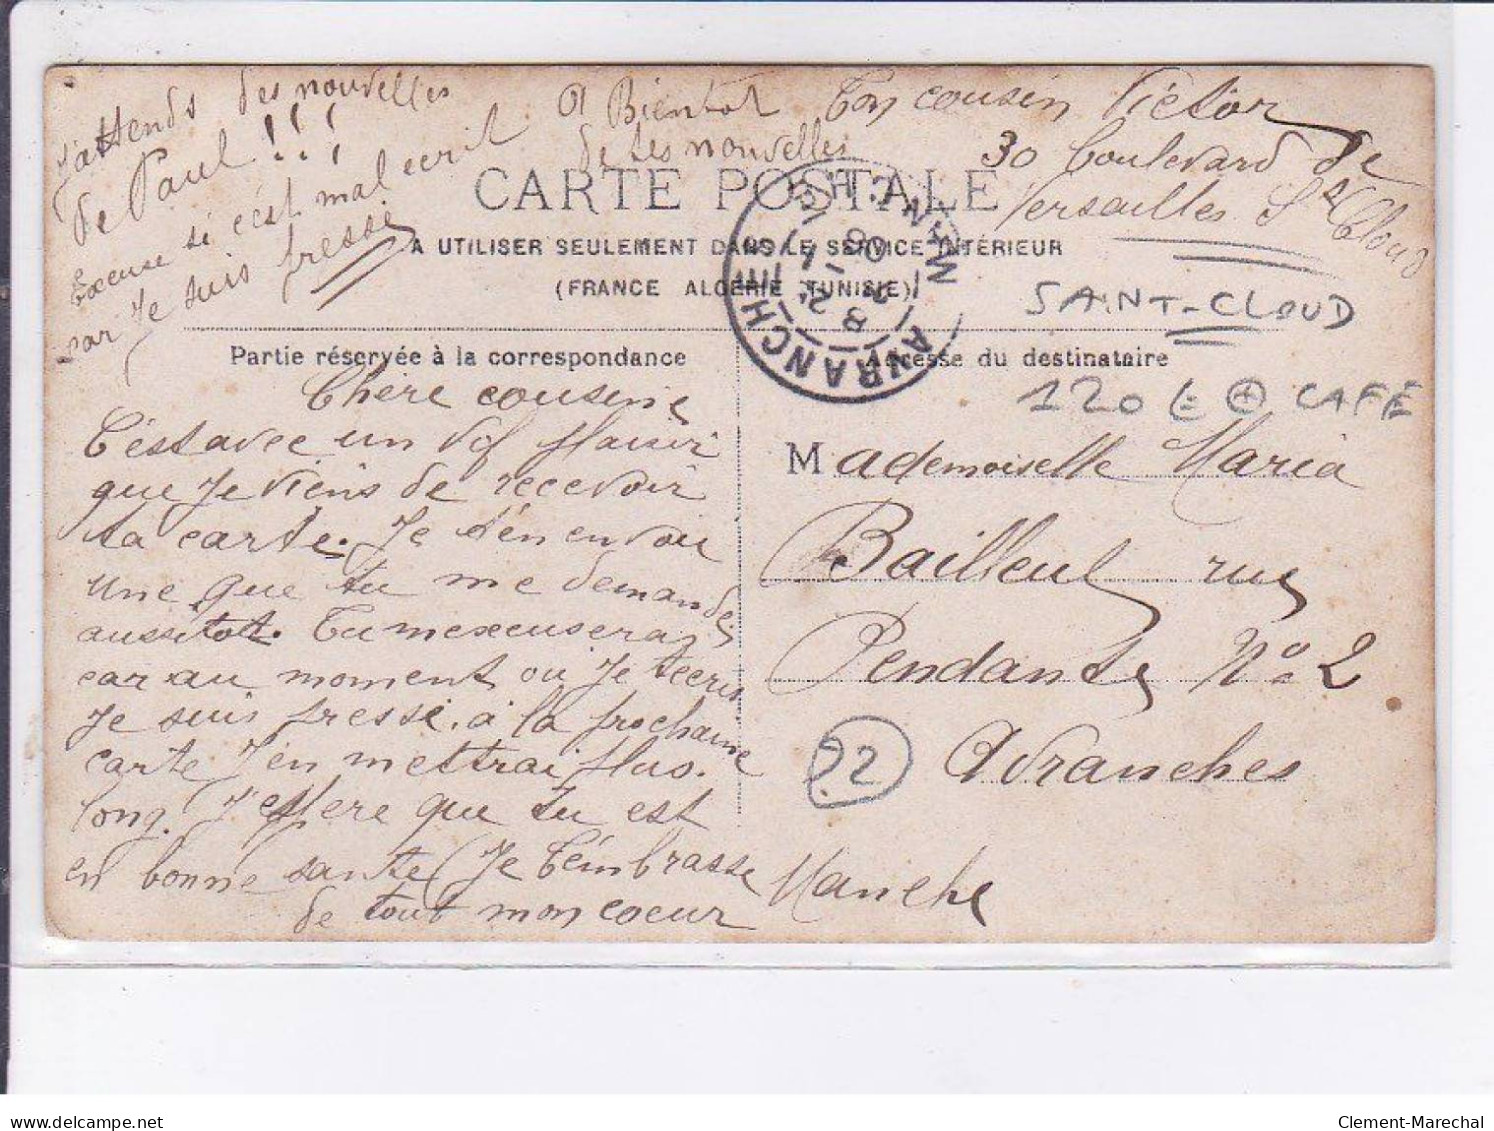 J'attends des nouvelles
de Paul !!!
Excuse si c'est mal ecrit
car Je suis pressé
A Bientot
de tes nouvelles
Ton cousin Victor
30 boulevard de
Versailles St Cloud
CARTE POSTALE
A UTILISER SEULEMENT DANS LE SERVICE INTÉRIEUR
(FRANCE ALGÉRIE TUNISIE)
AVRANCHES
MANCHE
SAINT-CLOUD
Partie réservée à la correspondance
Adresse du destinataire
120 € + CAFÉ
Chere cousine
C'est avec un vif plaisir
que Je viens de recevoir
ta carte. Je t'en envoie
une que tu me demandes
aussitot. Tu mexcuseras
car au moment où Je t'ecris
Je suis pressé. à la prochaine
carte J'en mettrai plus
long. J'espere que tu est
en bonne sante Je t'embrasse
de tout mon coeur
Mademoiselle Maria
Bailleul rue
Pendante No 2
Avranches
Manche
22
www.delcampe.net
Clement-Marechal